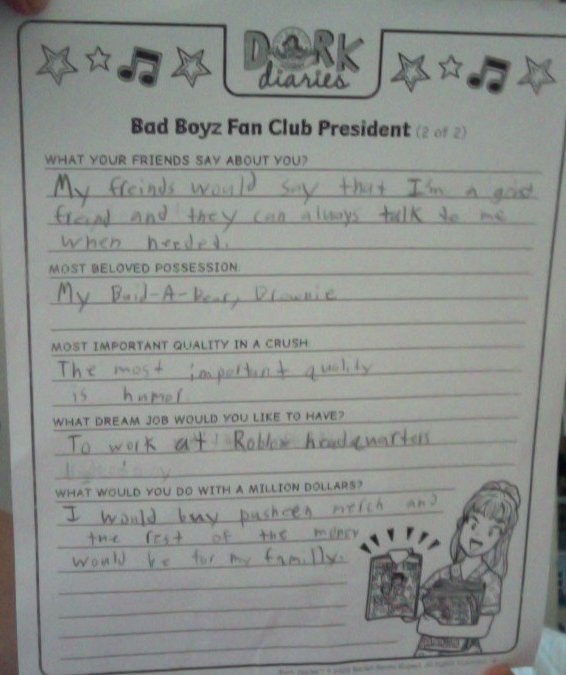 DORK
diaries
Bad Boyz Fan Club President (2 of 2)
WHAT YOUR FRIENDS SAY ABOUT YOU?
My freinds would say that I'm a good
freind and they can always talk to me
when needed.
MOST BELOVED POSSESSION:
My Buid-A-Bear, Brownie
MOST IMPORTANT QUALITY IN A CRUSH:
The most important quality
is humor
WHAT DREAM JOB WOULD YOU LIKE TO HAVE?
To work at Roblox headquarters
WHAT WOULD YOU DO WITH A MILLION DOLLARS?
I would buy pusheen merch and
the rest of the money
would be for my familly.